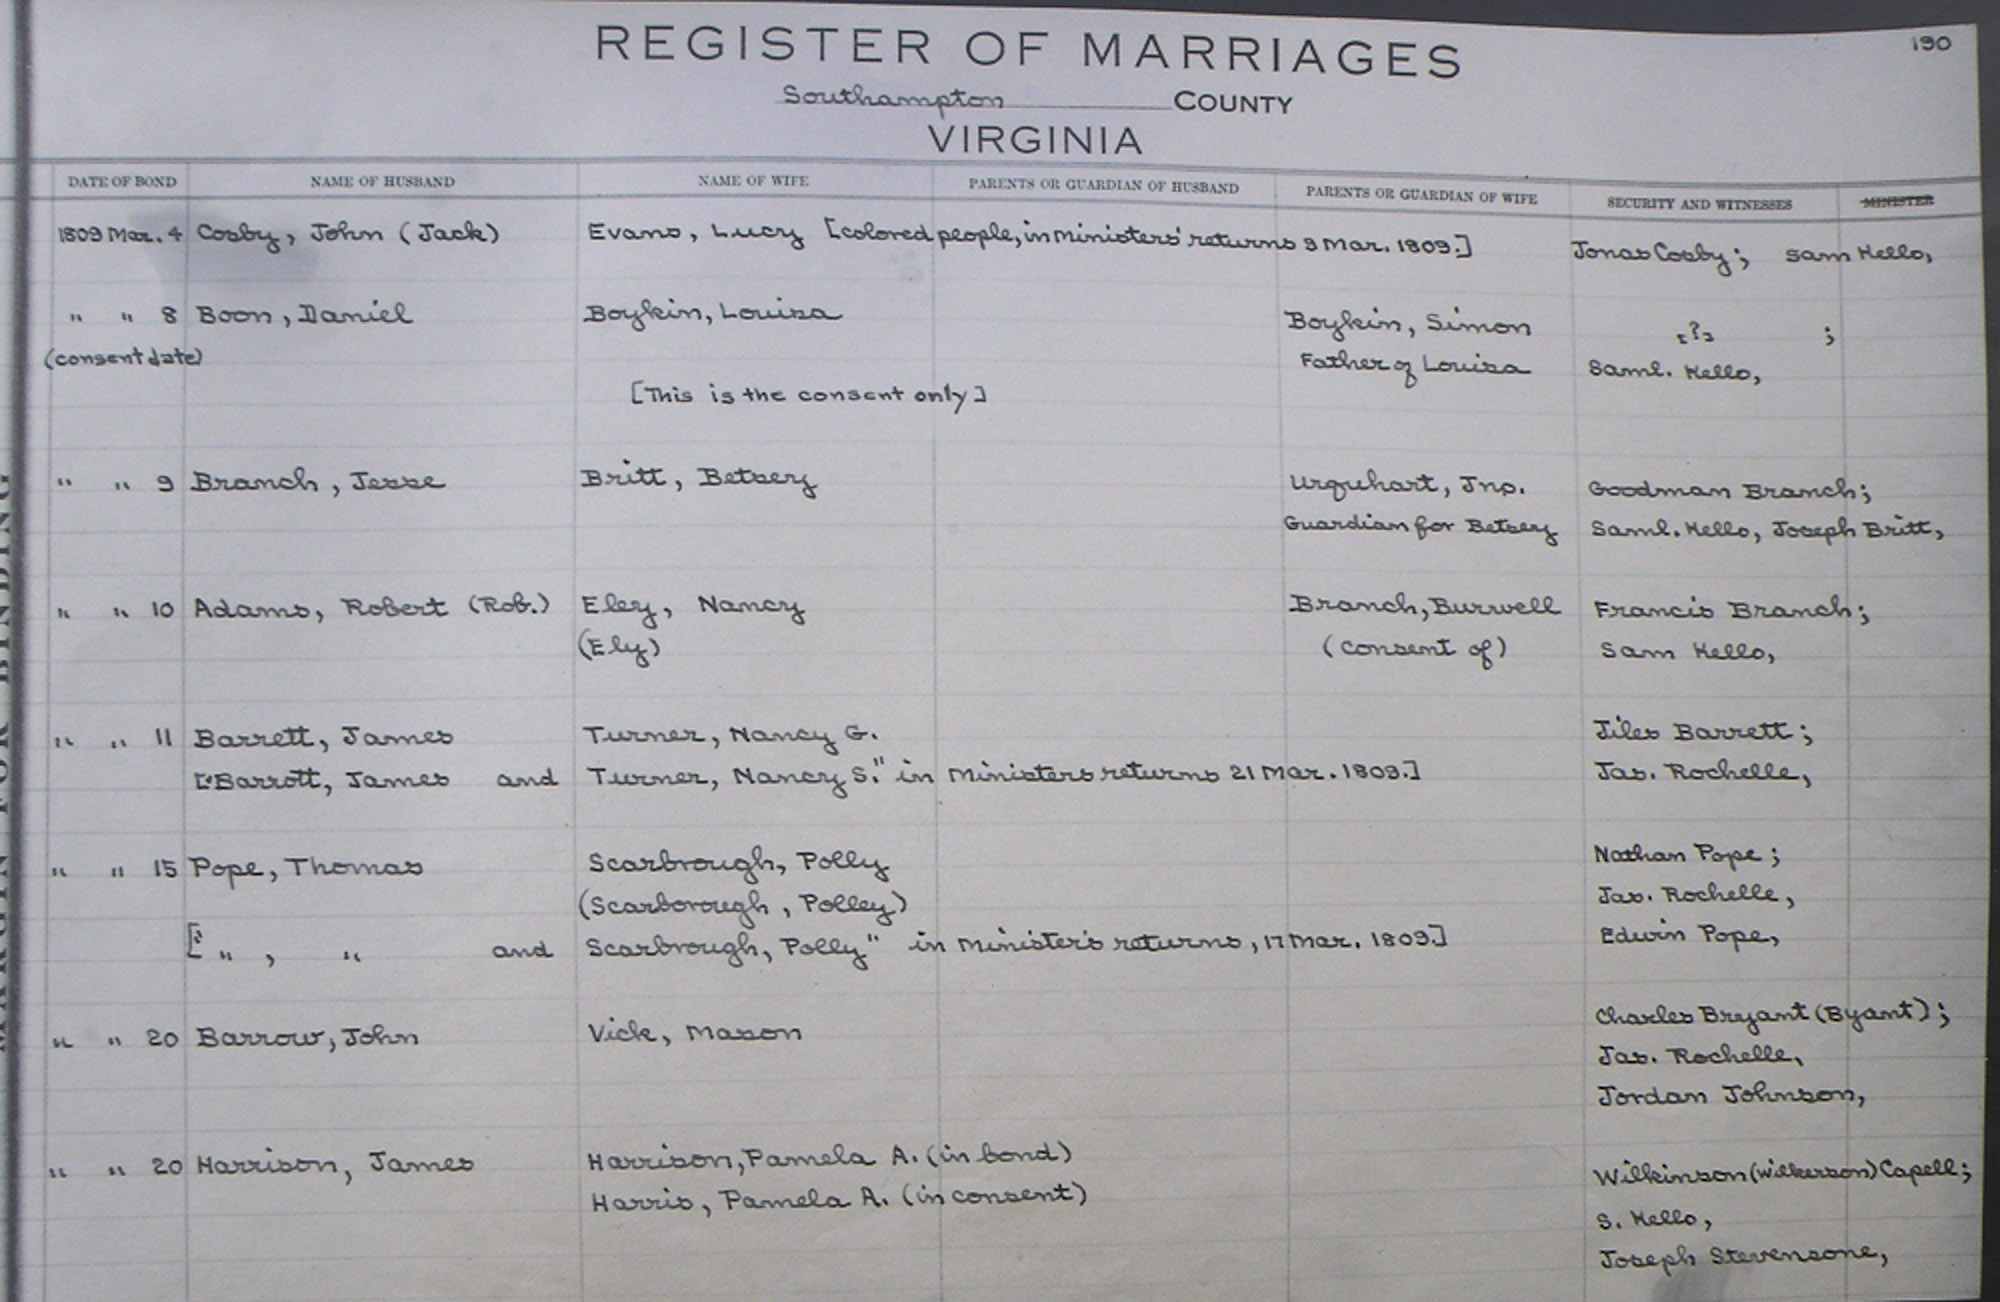 190
REGISTER OF MARRIAGES
Southampton COUNTY
VIRGINIA
DATE OF BOND NAME OF HUSBAND NAME OF WIFE PARENTS OR GUARDIAN OF HUSBAND PARENTS OR GUARDIAN OF WIFE SECURITY AND WITNESSES MINISTER
1809 Mar. 4 Cosby, John (Jack) Evans, Lucy [colored people, in ministers' returns 9 Mar. 1809.] Jonas Cosby; Sam Kello,
" " 8 Boon, Daniel Boykin, Louisa Boykin, Simon [?] ;
(consent date) Father of Louisa Saml. Kello,
[This is the consent only]
" " 9 Branch, Jesse Britt, Betsey Urquhart, Jno. Goodman Branch;
Guardian for Betsey Saml. Kello, Joseph Britt,
" " 10 Adams, Robert (Rob.) Eley, Nancy Branch, Burwell Francis Branch;
(Ely) (consent of) Sam Kello,
" " 11 Barrett, James Turner, Nancy G. Jiles Barrett;
["Barrott, James and Turner, Nancy S." in Ministers returns 21 Mar. 1809.] Jas. Rochelle,
" " 15 Pope, Thomas Scarbrough, Polly Nathan Pope;
(Scarborough, Polley) Jas. Rochelle,
[" " , " and Scarbrough, Polly" in Minister's returns, 17 Mar. 1809.] Edwin Pope,
" " 20 Barrow, John Vick, Mason Charles Bryant (Byant);
Jas. Rochelle,
Jordan Johnson,
" " 20 Harrison, James Harrison, Pamela A. (in bond) Wilkinson (Wilkerson) Capell;
Harris, Pamela A. (in consent) S. Kello,
Joseph Stevensone,
MARGIN FOR BINDING